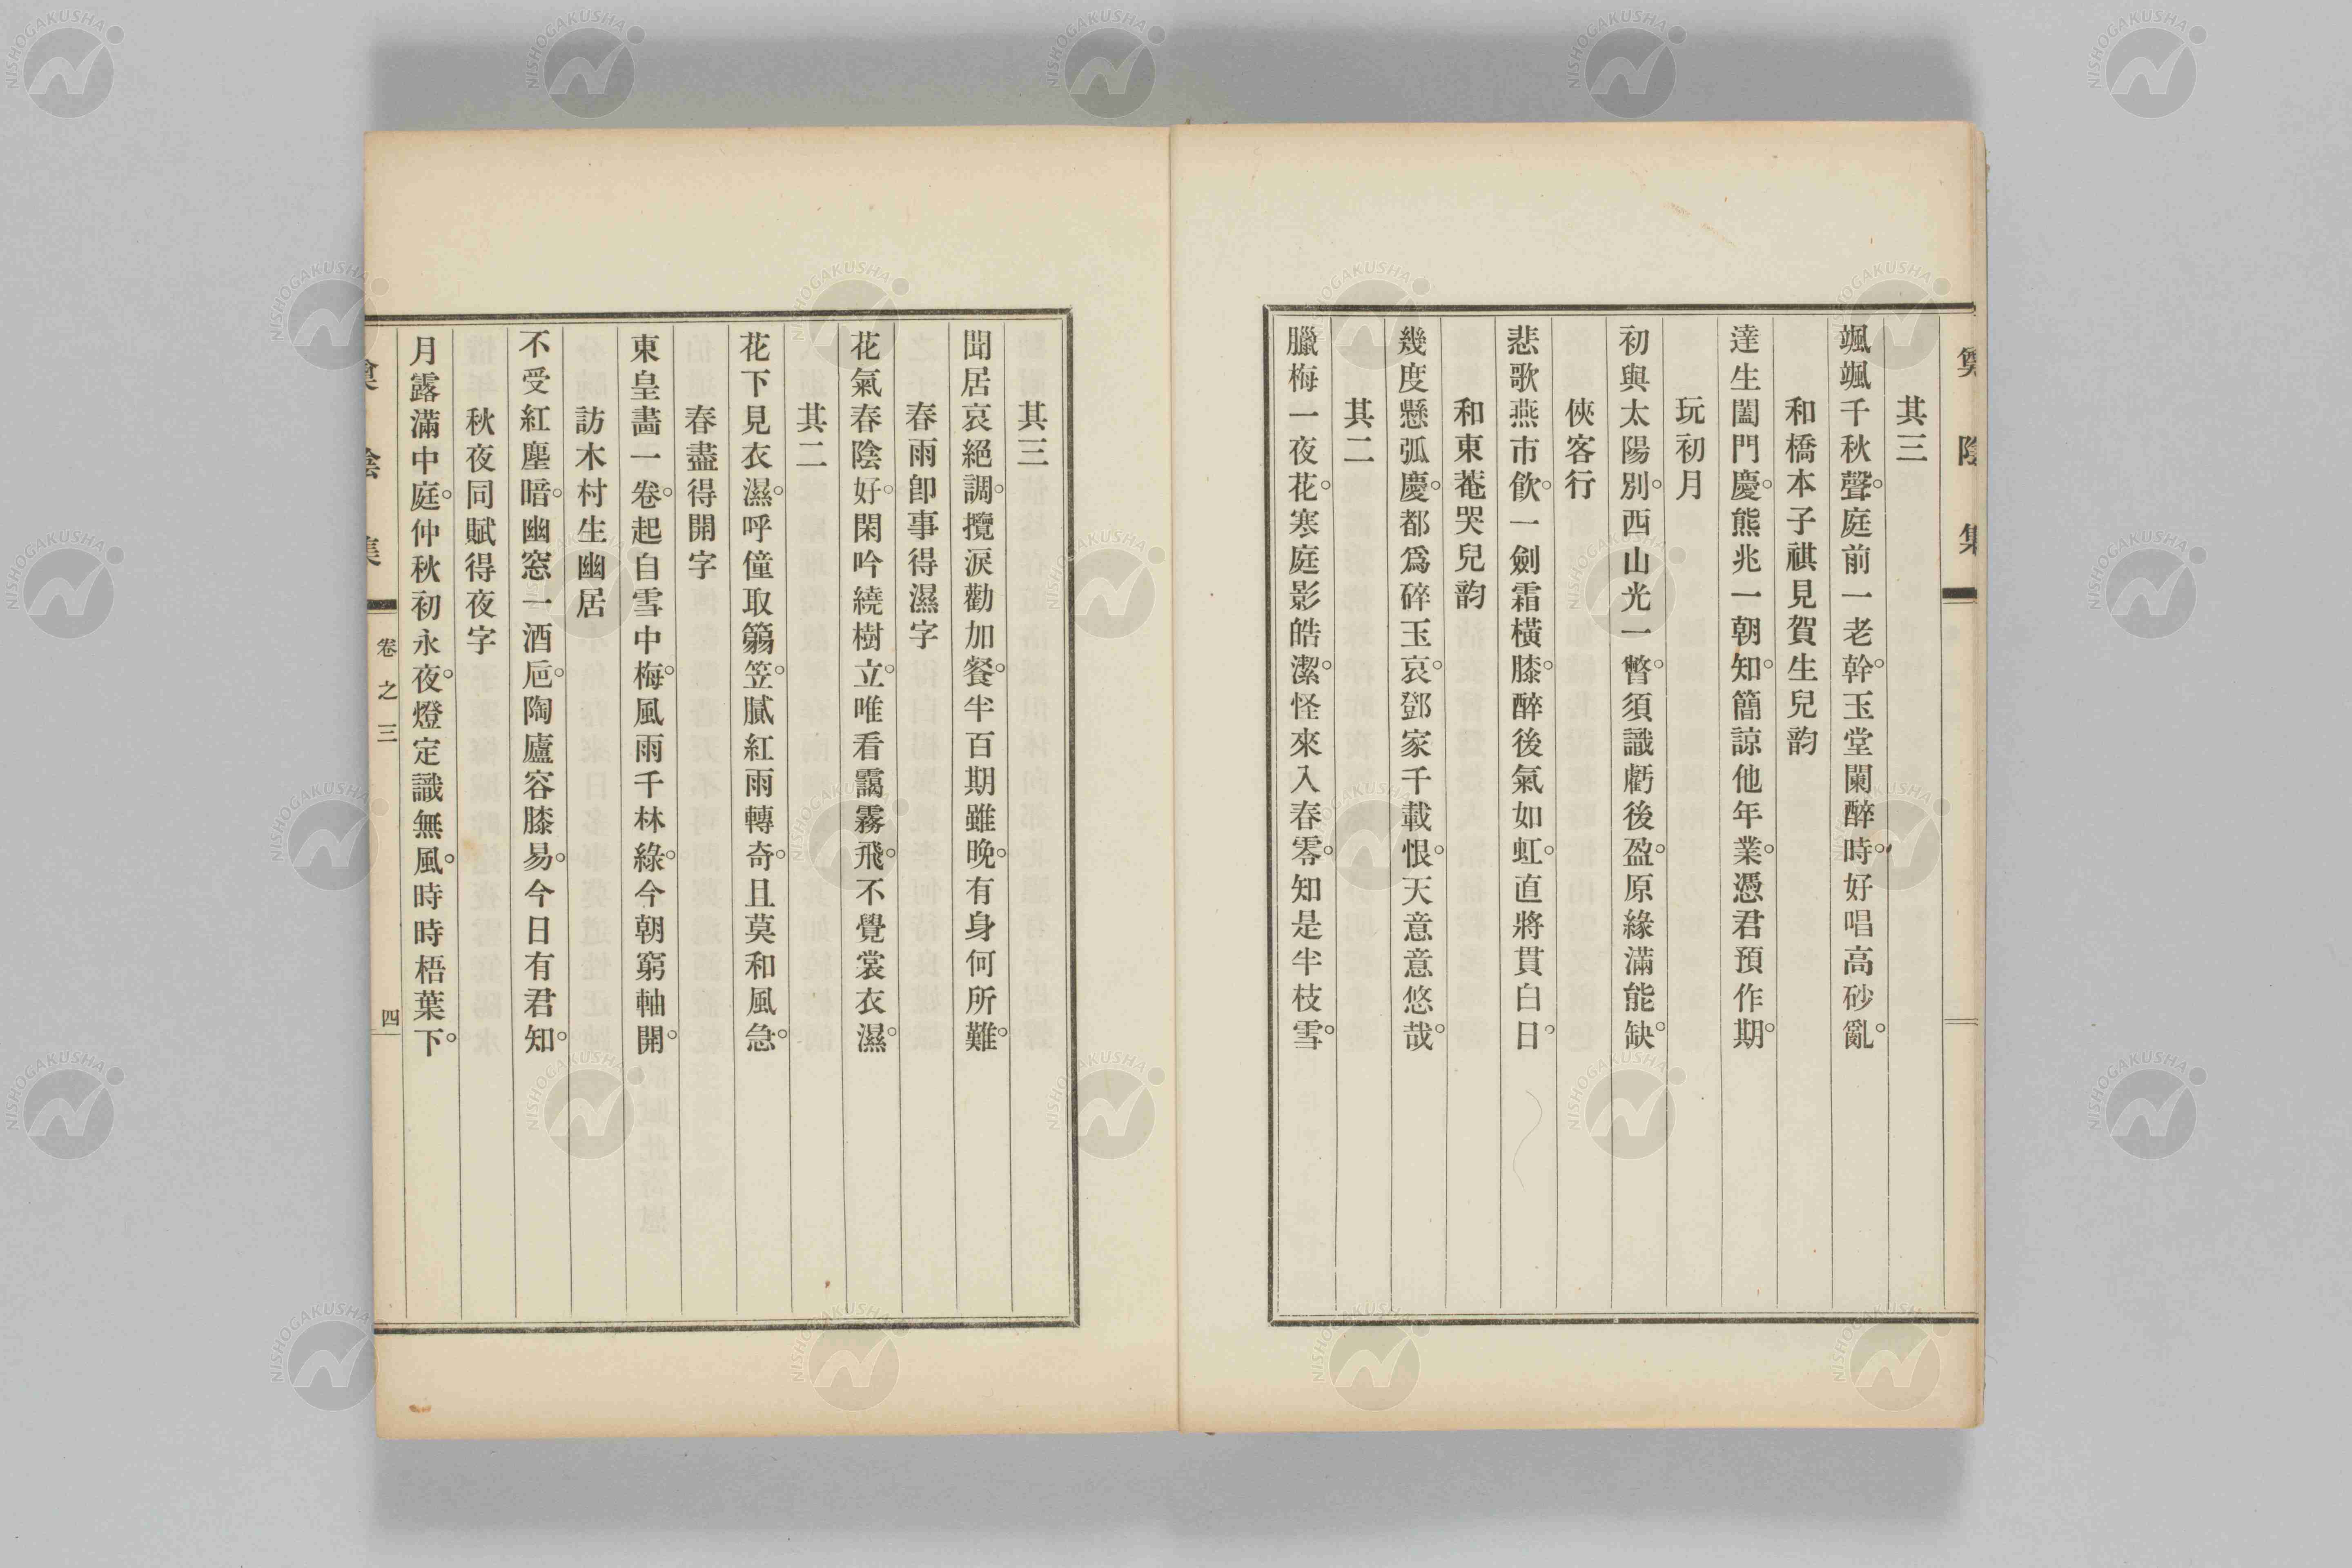 其三
颯颯千秋聲。庭前一老幹。玉堂闌醉時。好唱高砂亂。
和橋本子祺見賀生兒韵
達生闔門慶。熊兆一朝知。簡諒他年業。憑君預作期。
玩初月
初與太陽別。西山光一瞥。須識虧後盈。原緣滿能缺。
俠客行
悲歌燕市飮。一劍霜橫膝。醉後氣如虹。直將貫白日。
和東菴哭兒韵
幾度懸弧慶。都爲碎玉哀。鄧家千載恨。天意意悠哉。
其二
臘梅一夜花。寒庭影皓潔。怪來入春零。知是半枝雪。
其三
聞居哀絕調。攬淚勸加餐。半百期雖晚。有身何所難。
春雨卽事得濕字
花氣春陰好。閑吟繞樹立。唯看靄霧飛。不覺裳衣濕。
其二
花下見衣濕。呼僮取篛笠。膩紅雨轉奇。且莫和風急。
春盡得開字
東皇畵一卷。起自雪中梅。風雨千林綠。今朝窮軸開。
訪木村生幽居
不受紅塵暗。幽窓一酒巵。陶廬容膝易。今日有君知。
秋夜同賦得夜字
月露滿中庭。仲秋初永夜。燈定識無風。時時梧葉下。
陰集
卷之三
四
NISHOGAKUSHA